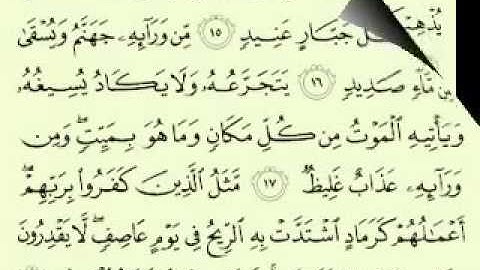 كُلُّ جَبَّارٍ عَنِيدٍ ١٥ مِّن وَرَآئِهِۦ جَهَنَّمُ وَيُسْقَىٰ
مِن مَّآءٍ صَدِيدٍ ١٦ يَتَجَرَّعُهُۥ وَلَا يَكَادُ يُسِيغُهُۥ
وَيَأْتِيهِ ٱلْمَوْتُ مِن كُلِّ مَكَانٍ وَمَا هُوَ بِمَيِّتٍۖ وَمِن
وَرَآئِهِۦ عَذَابٌ غَلِيظٌ ١٧ مَّثَلُ ٱلَّذِينَ كَفَرُوا۟ بِرَبِّهِمْۖ
أَعْمَٰلُهُمْ كَرَمَادٍ ٱشْتَدَّتْ بِهِ ٱلرِّيحُ فِى يَوْمٍ عَاصِفٍۖ لَّا يَقْدِرُونَ